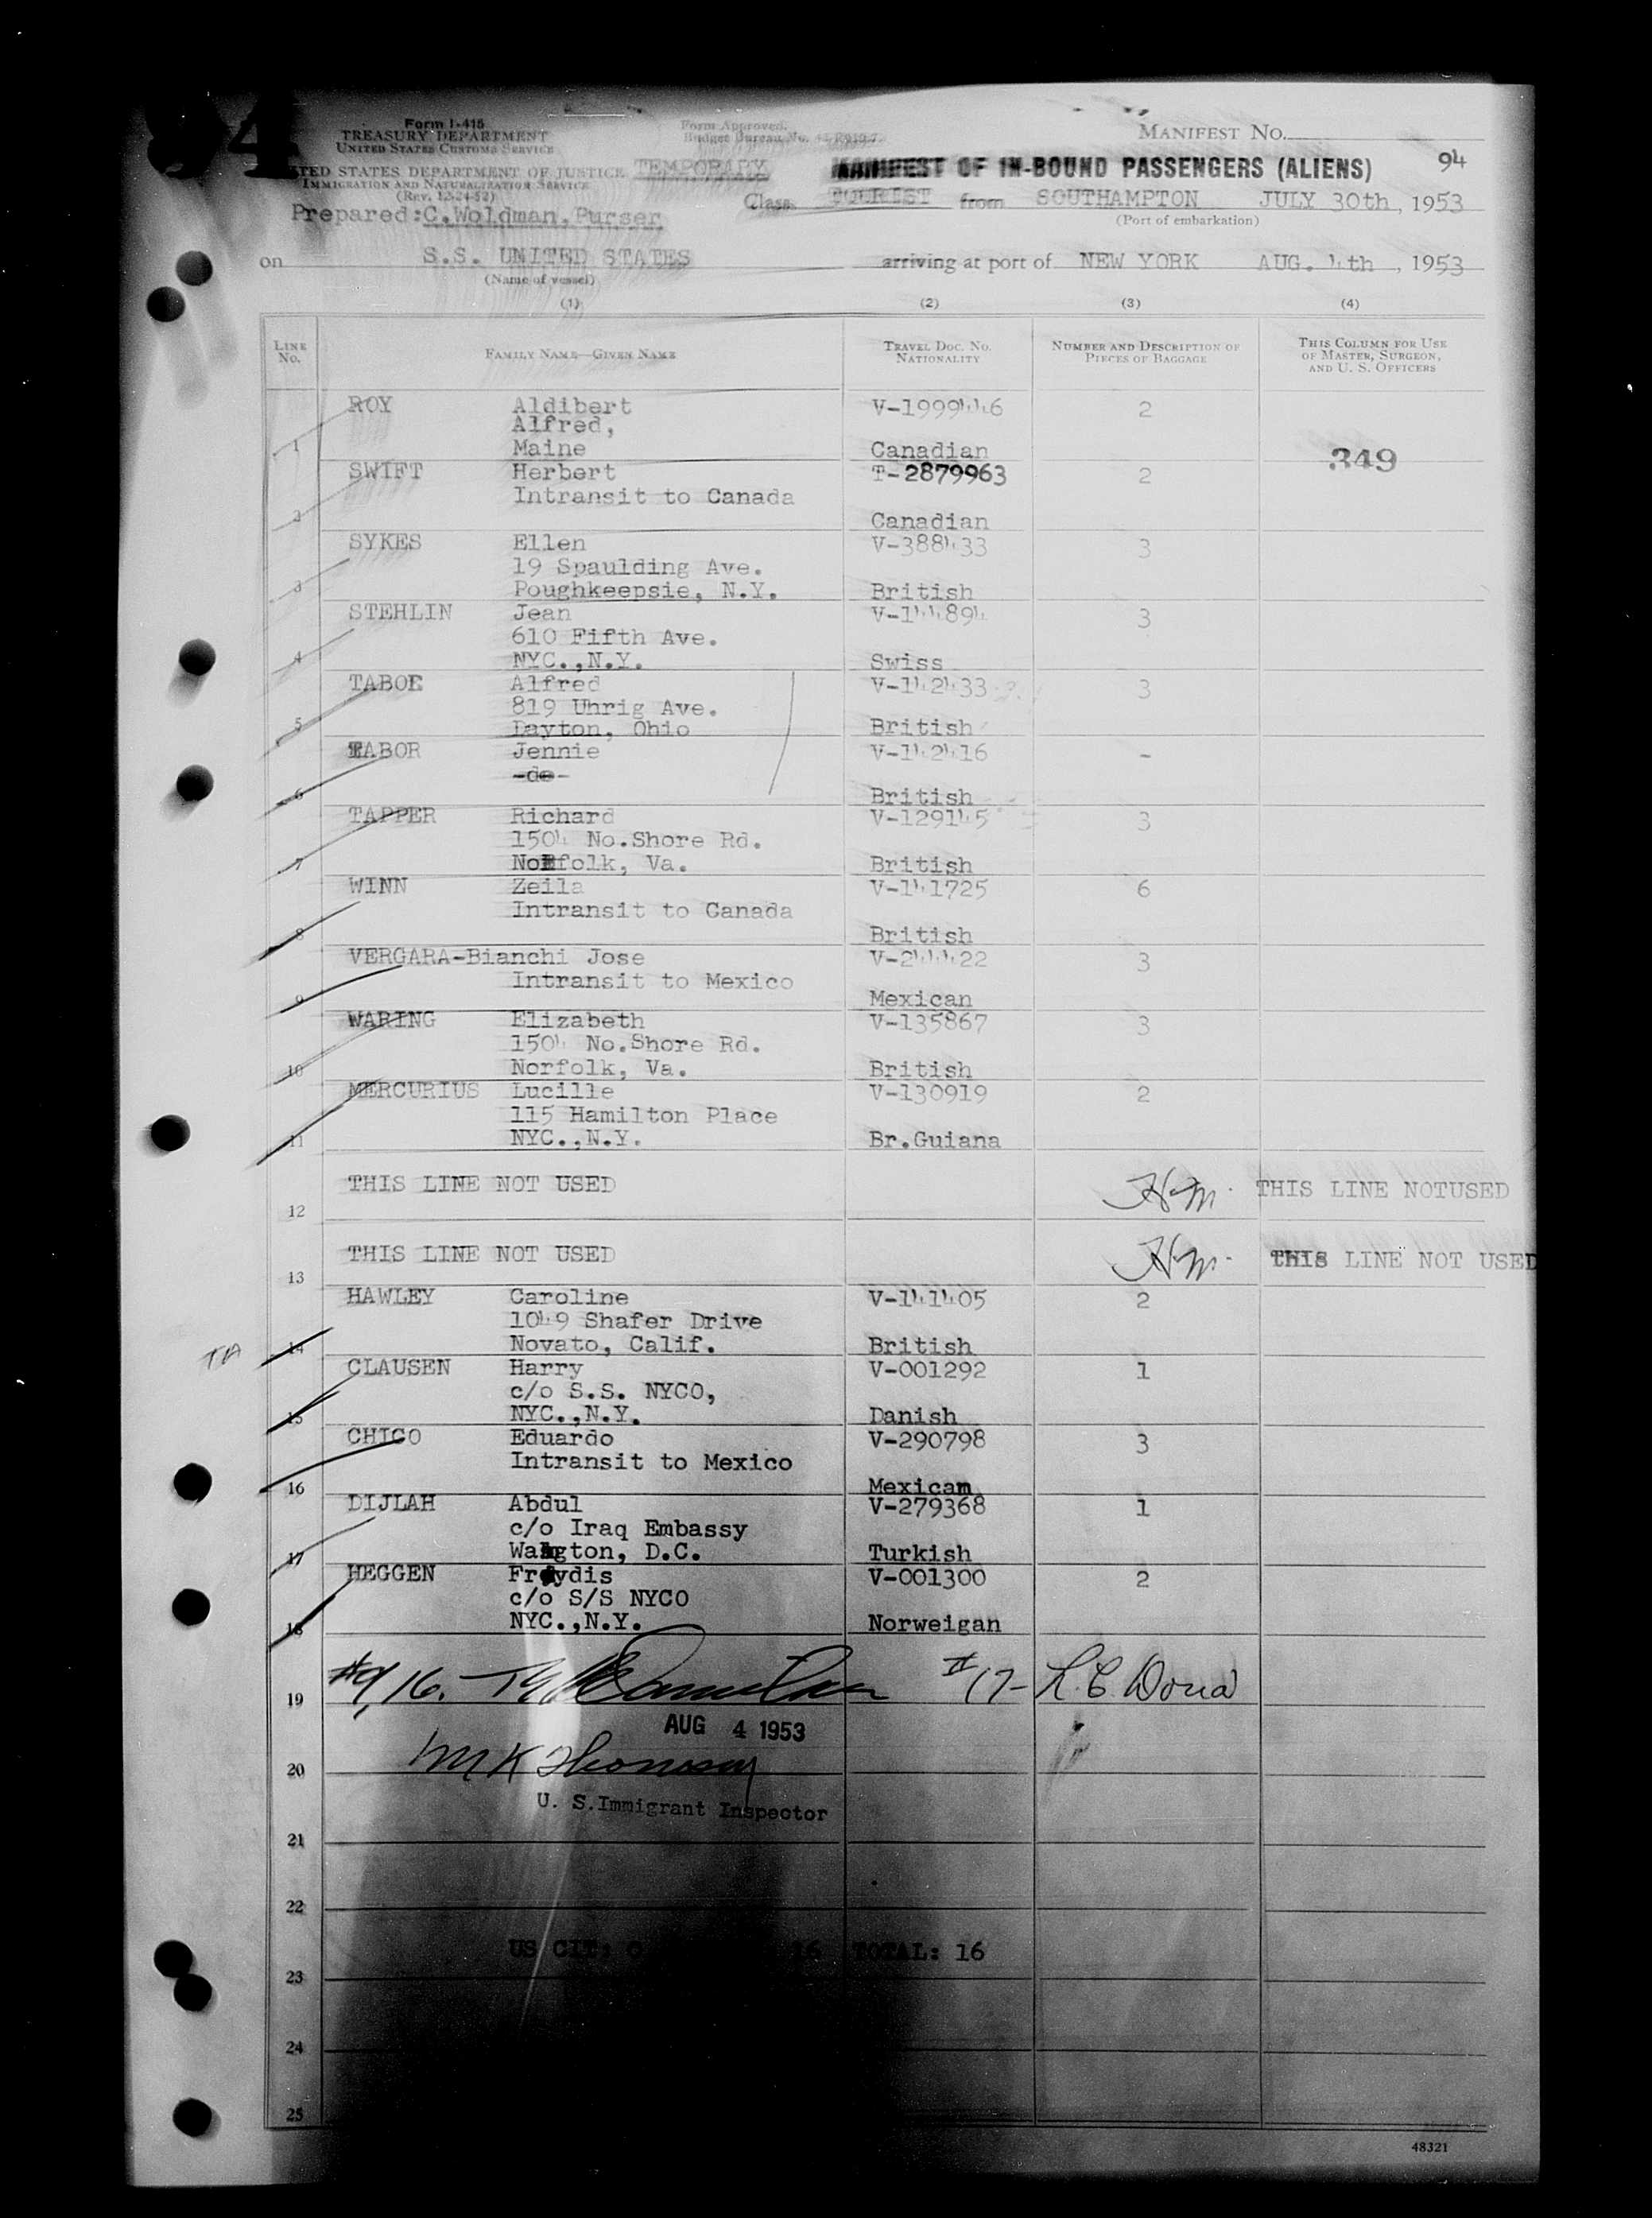 94
Form I-415
TREASURY DEPARTMENT
UNITED STATES CUSTOMS SERVICE
Form Approved.
Budget Bureau No.
MANIFEST No.
UNITED STATES DEPARTMENT OF JUSTICE
IMMIGRATION AND NATURALIZATION SERVICE
(Rev. 12-24-52)
TEMPORARY
MANIFEST OF IN-BOUND PASSENGERS (ALIENS)
94
Prepared:C.Woldman,Purser
Class TOURIST from SOUTHAMPTON JULY 30th, 1953
(Port of embarkation)
on S.S. UNITED STATES arriving at port of NEW YORK AUG. 4th, 1953
(Name of vessel)
(1) (2) (3) (4)
LINE No. FAMILY NAME—GIVEN NAME TRAVEL DOC. NO. NATIONALITY NUMBER AND DESCRIPTION OF PIECES OF BAGGAGE THIS COLUMN FOR USE OF MASTER, SURGEON, AND U. S. OFFICERS
ROY Aldibert V-1999446 2
Alfred,
1 Maine Canadian 349
SWIFT Herbert T-2879963 2
Intransit to Canada
2 Canadian
SYKES Ellen V-388433 3
19 Spaulding Ave.
3 Poughkeepsie, N.Y. British
STEHLIN Jean V-144894 3
610 Fifth Ave.
4 NYC.,N.Y. Swiss
TABOR Alfred V-142433 3
819 Uhrig Ave.
5 Dayton, Ohio British
TABOR Jennie V-142416 -
-do-
6 British
TAPPER Richard V-129145 3
1504 No.Shore Rd.
7 Norfolk, Va. British
WINN Zeila V-141725 6
Intransit to Canada
8 British
VERGARA-Bianchi Jose V-244422 3
Intransit to Mexico
9 Mexican
WARING Elizabeth V-135867 3
1504 No.Shore Rd.
10 Norfolk, Va. British
MERCURIUS Lucille V-130919 2
115 Hamilton Place
11 NYC.,N.Y. Br.Guiana
THIS LINE NOT USED H.M. THIS LINE NOTUSED
12
THIS LINE NOT USED H.M. THIS LINE NOT USED
13
HAWLEY Caroline V-141405 2
1049 Shafer Drive
14 Novato, Calif. British
CLAUSEN Harry V-001292 1
c/o S.S. NYCO,
15 NYC.,N.Y. Danish
CHICO Eduardo V-290798 3
Intransit to Mexico
16 Mexican
DIJLAH Abdul V-279368 1
c/o Iraq Embassy
17 Wahgton, D.C. Turkish
HEGGEN Frøydis V-001300 2
c/o S/S NYCO
18 NYC.,N.Y. Norweigan
19 #9,16. #17- L.C. Doria
AUG 4 1953
20 M K
U. S.Immigrant Inspector
21
22
US CIT: 0 16 TOTAL: 16
23
24
25
48321